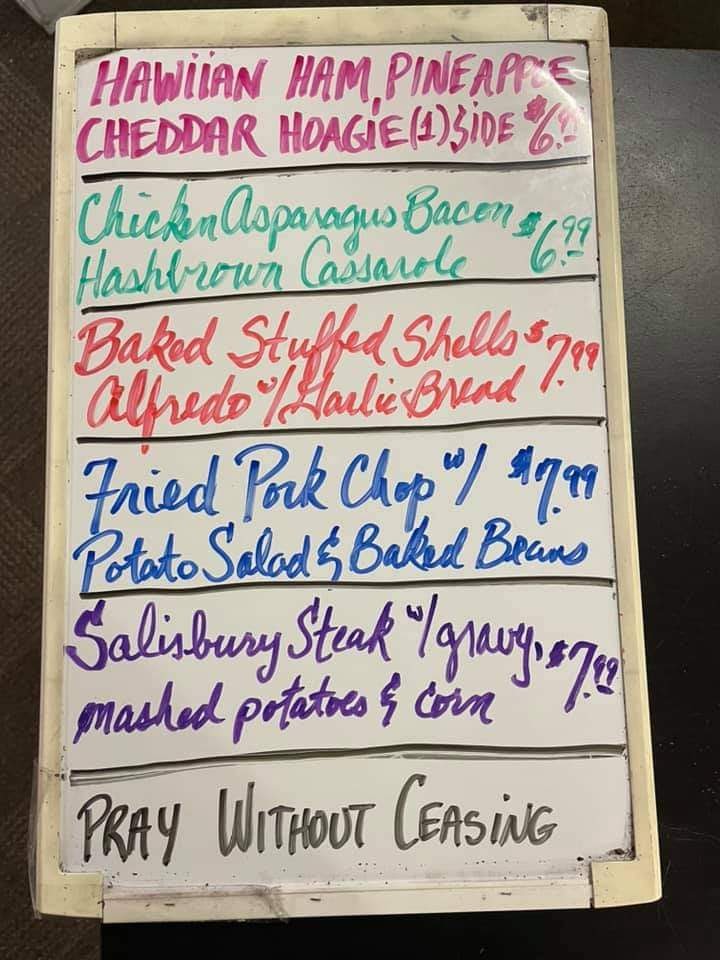 HAWIIAN HAM, PINEAPPLE
CHEDDAR HOAGIE (1) SIDE $6.99
Chicken Asparagus Bacon $6.99
Hashbrown Cassarole
Baked Stuffed Shells $7.99
Alfredo w/ Garlic Bread
Fried Pork Chop w/ $7.99
Potato Salad & Baked Beans
Salisbury Steak w/ gravy, $7.99
mashed potatoes & corn
PRAY WITHOUT CEASING